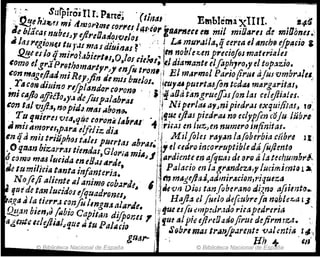 Suspiros II. Parte,
Que hizes mi Amor, que corres ligero
de blãcas nubes, y estrellados velos
à las regiones tuyas mas diuinas?
Que es lo que miro? abiertos, O, los cielos!
como el gră Prothomartyr, y en su trono
con magestad mi Rey, fin de mis buelos.
Ya con diuino resplandor corono
mi casto affecto, ya de sus palabras
con tal vista, no pido mas abono.
Tu quieres vea, que coronã labras
à mis amores, para el feliz dia
en q̃ à mis triũphos tales puertas abras.
O quan bizarras tiendas, Gloria mia,
ò como mas lucida en ellas arde,
de tu milicia tanta infanteria.
No se si aliente al animo cobarde,
que de tan lucidos esquadrones,
haga à la tierra confusa lengua alarde.
Quan bien, ò sabio Capitan dispones
agente celestial, que à tu Palacio
guar-
Emblema XIIII. 246
guarnecen en mil millares de millones.
La muralla, q̃ cerca el ancho espacio
en nobleze en preciosos materiales
el diamante el saphyro, y el topazio.
El marmol Pario sirue à sus vmbrales,
cuyas puertas son todas margaritas,
q̃ allà tan gruessas son las celestiales.
Ni perlas ay, ni piedras exquisitas,
que estas piedras no eclypsen cõ su lũbre
ricas en luz, en numero infinitas.
Mil soles rayan la soberbia cũbre
y el cedro incorruptible dà sustento
ardiente en asquas de oro à la techumbre.
Palacio en la grandeza, y lucimiento
en magestad, admiracion, riqueza
de vn Dios tan soberano digno assiento.
Hasta el suelo descubre su nobleza
que es su empedrado rica pedreria
que al pie estrellado sirue de firmeza.
Sobre mas transparente valentia
Hh 4 en
© Biblioteca Nacional de España
© Biblioteca Nacional de España